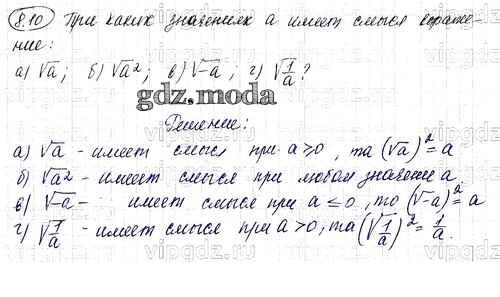 8.10 При каких значениях а имеет смысл выраже-
ние:
а) √a; б) √a²; в) √-a; г) √1/a?
gdz.moda
Решение:
а) √a - имеет смысл при a≥0, та (√a)²=a
б) √a² - имеет смысл при любом значение a
в) √-a - имеет смысл при a≤0, то (√-a)²=a
г) √1/a - имеет смысл при a>0, та (√1/a)²=1/a.
vipgdz.ru